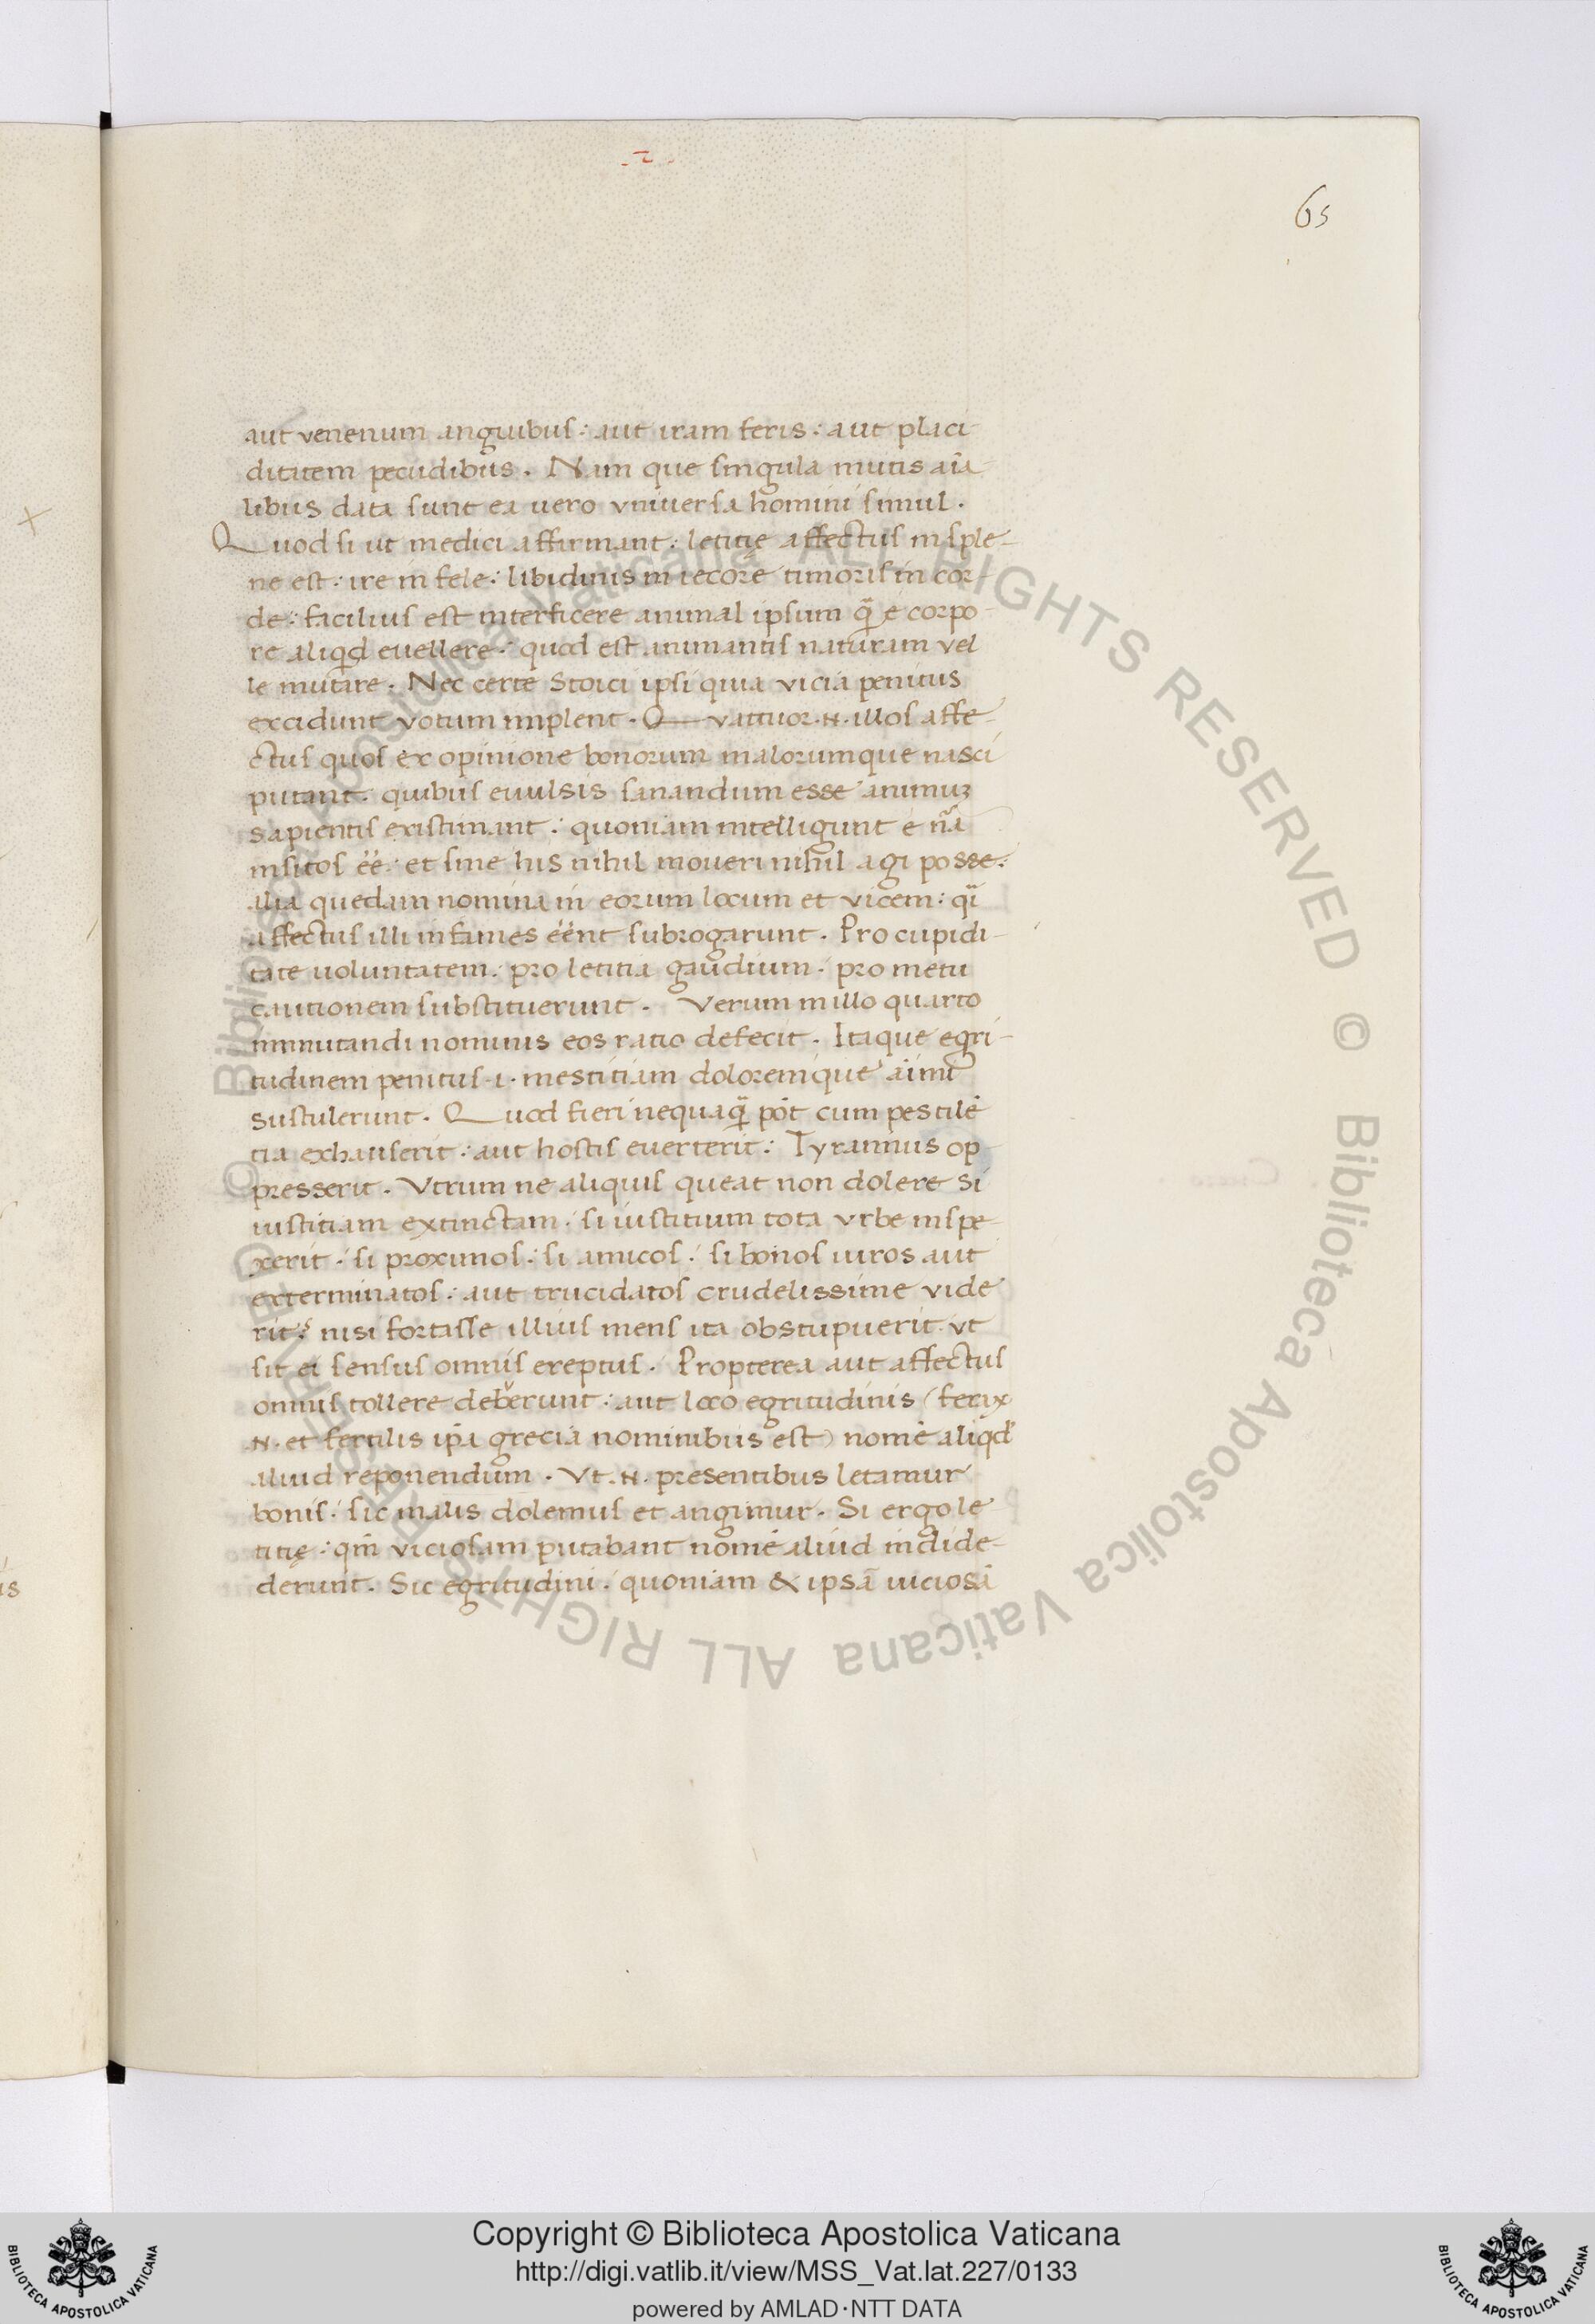 65
aut venenum anguibus: aut iram feris: aut placi
ditatem pecudibus. Nam que singula mutis aı̄a
libus data sunt ea uero vniuersa homini simul.
Quod si ut medici affirmant: letitię affectus in sple-
ne est: ire in fele: libidinis in iecore timoris in cor-
de: facilius est interficere animal ipsum q̄ e corpo-
re aliqd euellere: quod est animantis naturam vel
le mutare. Nec certe Stoici ipsi quia vicia penitus
excidunt votum implent. Quattuor .N. illos affe-
ctus quos ex opinione bonorum malorumque nasci
putant. quibus euulsis sanandum esse animuꝫ
sapientis existimant: quoniam intelligunt e nr̄a
insitos ēē: et sine his nihil moueri nihil agi posse:
alia quedam nomina in eorum locum et vicem: qı̄
affectus illi infames ēēnt subrogarunt. Pro cupidi-
tate uoluntatem: pro letitia gaudium: pro metu
cautionem substituerunt. Verum in illo quarto
immutandi nominis eos ratio defecit. Itaque egri-
tudinem penitus .i. mestitiam doloremique aı̄mi
sustulerunt. Quod fieri nequaq̄ pōt cum pestilē
tia exhauserit: aut hostis euerterit: Tyrannus op
presserit. Vtrum ne aliquis queat non dolere si
iustitiam extinctam. si iustitium tota vrbe inspe-
xerit: si proximos: si amicos: si bonos uiros aut
exterminatos: aut trucidatos crudelissime vide
rit? nisi fortasse illius mens ita obstupuerit. vt
sit ei sensus omnis ereptus. Propterea aut affectus
omnis tollere debuerunt: aut loco egritudinis (ferax
.N. et fertilis ip̄a grecia nominibus est) nomē aliqd
aliud reponendum. Vt .N. presentibus letamur
bonis: sic malis dolemus et angimur. Si ergo le
titię: qm̄ viciosam putabant nomē aliud indide-
derunt. Sic egritudini. quoniam & ipsā uiciosā
Copyright © Biblioteca Apostolica Vaticana
http://digi.vatlib.it/view/MSS_Vat.lat.227/0133
powered by AMLAD·NTT DATA
BIBLIOTECA APOSTOLICA VATICANA
BIBLIOTECA APOSTOLICA VATICANA
© Biblioteca Apostolica Vaticana ALL RIGHTS RESERVED © Biblioteca Apostolica Vaticana ALL RIGHTS RESERVED